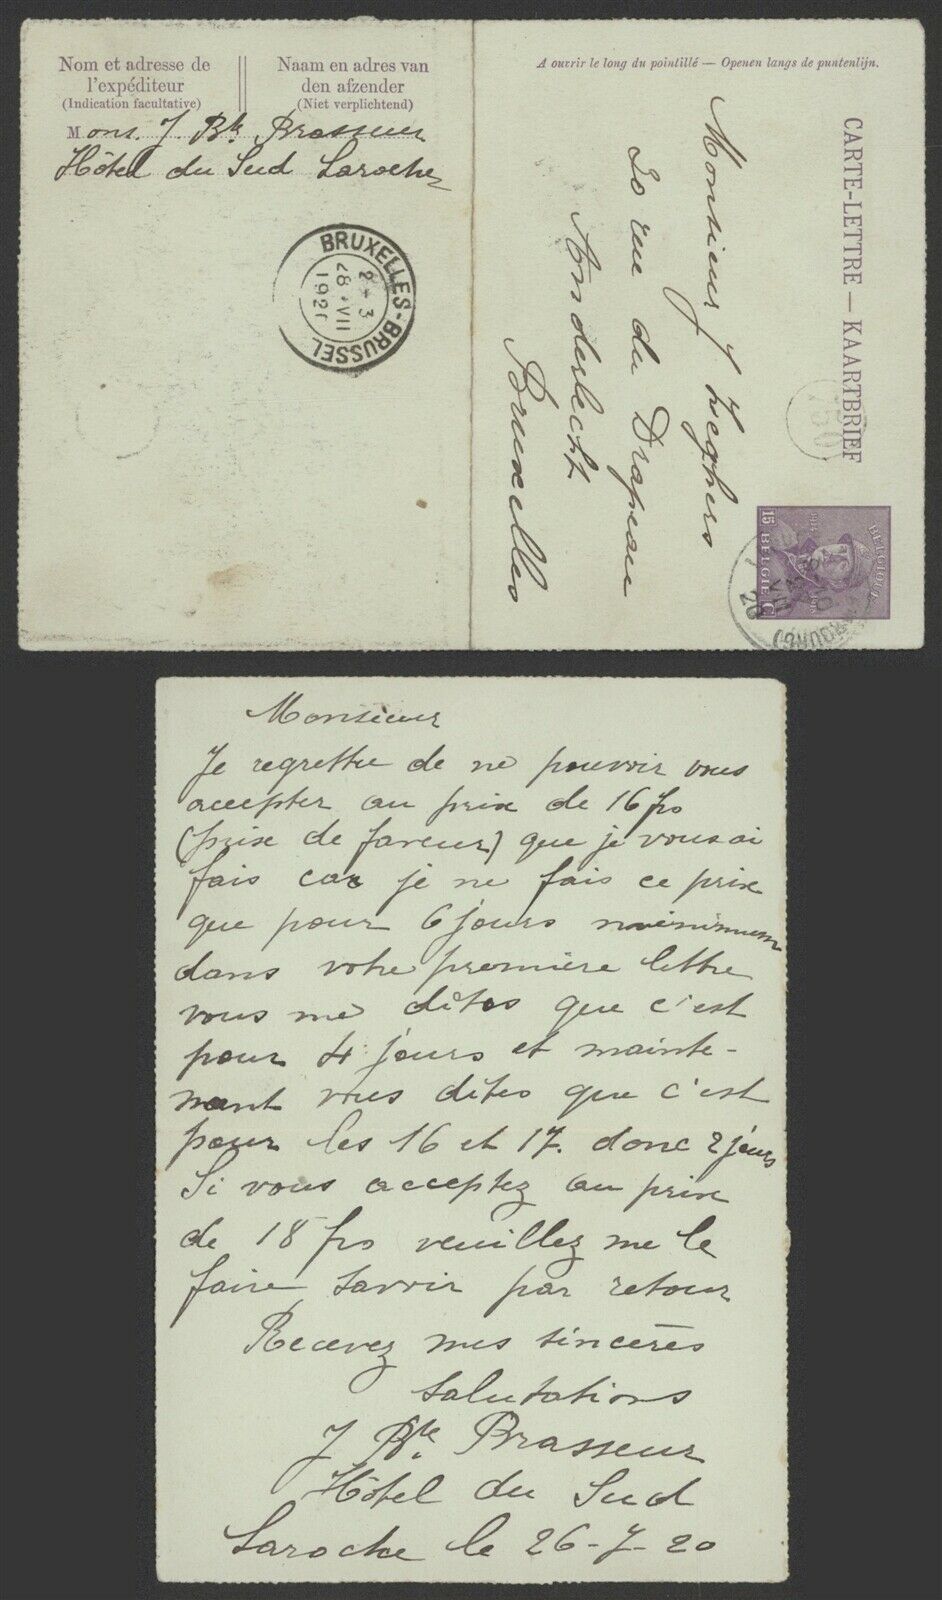 Nom et adresse de
l'expéditeur
(Indication facultative)
Naam en adres van
den afzender
(Niet verplichtend)
Mons. J. Bte Brasseur
Hôtel du Sud Laroche
BRUXELLES-BRUSSEL
2-3
28 VII
192
A ouvrir le long du pointillé — Openen langs de puntenlijn.
CARTE-LETTRE — KAARTBRIEF
Monsieur J Zeghers
20 rue du Drapeau
Anderlecht
Bruxelles
BELGIQUE
1914
15 BELGIE C
VII
20
Monsieur
Je regrette de ne pouvoir vous
accepter au prix de 16 frs
(prix de faveur) que je vous ai
fais car je ne fais ce prix
que pour 6 jours minimum
dans votre première lettre
vous me dîtes que c'est
pour 4 jours et mainte-
nant vous dîtes que c'est
pour les 16 et 17. donc 2 jours
Si vous acceptez au prix
de 18 frs veuillez me le
faire savoir par retour
Recevez mes sincères
salutations
J Bte Brasseur
Hôtel du Sud
Laroche le 26-7-20